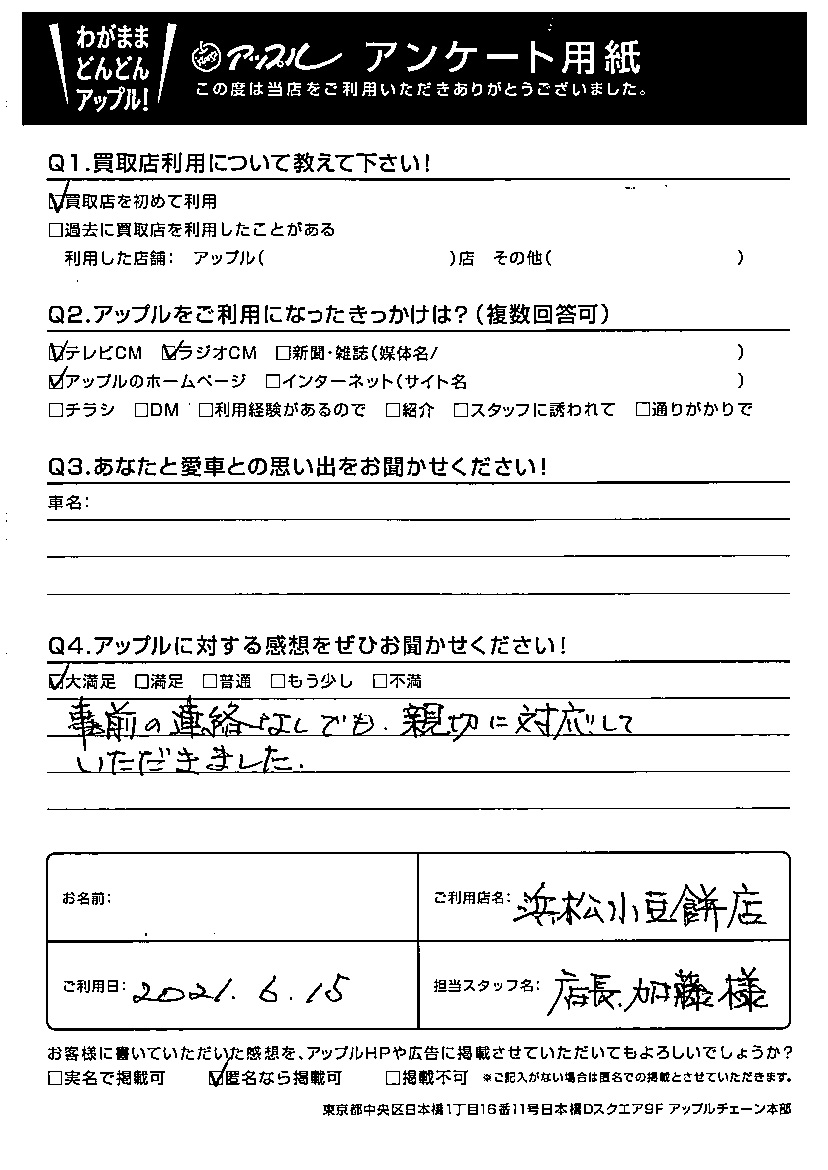 わがまま
どんどん
アップル!
アップル アンケート用紙
この度は当店をご利用いただきありがとうございました。
Q1.買取店利用について教えて下さい!
☑買取店を初めて利用
□過去に買取店を利用したことがある
利用した店舗: アップル( )店 その他( )
Q2.アップルをご利用になったきっかけは?(複数回答可)
☑テレビCM ☑ラジオCM □新聞・雑誌(媒体名/ )
☑アップルのホームページ □インターネット(サイト名 )
□チラシ □DM □利用経験があるので □紹介 □スタッフに誘われて □通りがかりで
Q3.あなたと愛車との思い出をお聞かせください!
車名:
Q4.アップルに対する感想をぜひお聞かせください!
☑大満足 □満足 □普通 □もう少し □不満
事前の連絡なしでも、親切に対応して
いただきました.
お名前:
ご利用店名: 浜松小豆餅店
ご利用日: 2021.6.15
担当スタッフ名: 店長.加藤様
お客様に書いていただいた感想を、アップルHPや広告に掲載させていただいてもよろしいでしょうか?
□実名で掲載可 ☑匿名なら掲載可 □掲載不可 ※ご記入がない場合は匿名での掲載とさせていただきます。
東京都中央区日本橋1丁目16番11号日本橋Dスクエア9F アップルチェーン本部